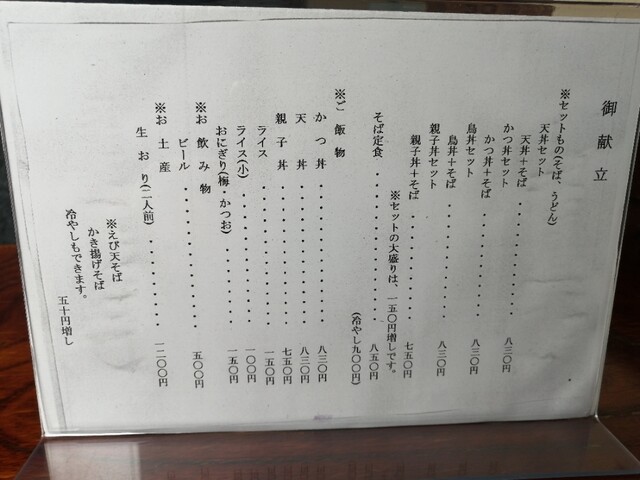 御献立
※セットもの(そば、うどん)
天丼セット
天丼＋そば・・・・・・・・八三〇円
かつ丼セット
かつ丼＋そば・・・・・・・八三〇円
鳥丼セット
鳥丼＋そば・・・・・・・・八三〇円
親子丼セット
親子丼＋そば・・・・・・・七五〇円
※セットの大盛りは、一五〇円増しです。
そば定食・・・・・・・・・八五〇円
(冷やし九〇〇円)
※ご飯物
かつ丼・・・・・・・・・・八三〇円
天丼・・・・・・・・・・・八三〇円
親子丼・・・・・・・・・・七五〇円
ライス・・・・・・・・・・一五〇円
ライス(小)・・・・・・・・一〇〇円
おにぎり(梅・かつお)・・・・一五〇円
※お飲み物
ビール・・・・・・・・・・五〇〇円
※お土産
生おり(二人前)・・・・・・一二〇〇円
※えび天そば
かき揚げそば
冷やしもできます。
五十円増し